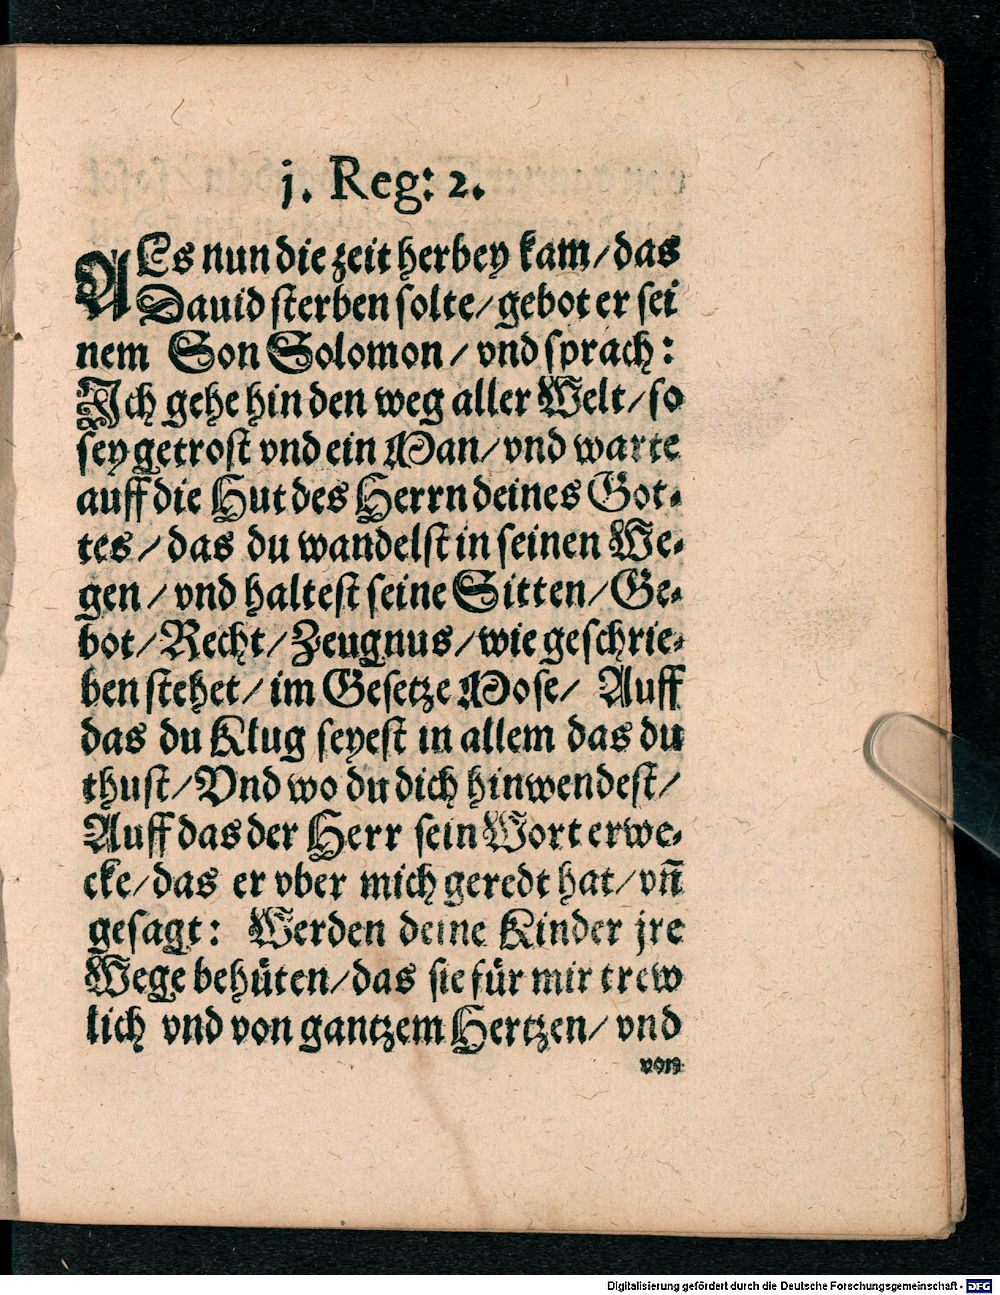 j. Reg: 2.
ALs nun die zeit herbey kam/das
Dauid sterben solte/gebot er sei
nem Son Solomon/vnd sprach:
Ich gehe hin den weg aller Welt/so
sey getrost vnd ein Man/vnd warte
auff die Hut des Herrn deines Got⸗
tes/das du wandelst in seinen We⸗
gen/vnd haltest seine Sitten/Ge⸗
bot/Recht/Zeugnus/wie geschrie⸗
ben stehet/im Gesetze Mose/ Auff
das du Klug seyest in allem das du
thust/Vnd wo du dich hinwendest/
Auff das der Herr sein Wort erwe⸗
cke/das er vber mich geredt hat/vn̄
gesagt: Werden deine Kinder jre
Wege behüten/das sie für mir trew
lich vnd von gantzem Hertzen/vnd
von
Digitalisierung gefördert durch die Deutsche Forschungsgemeinschaft - DFG